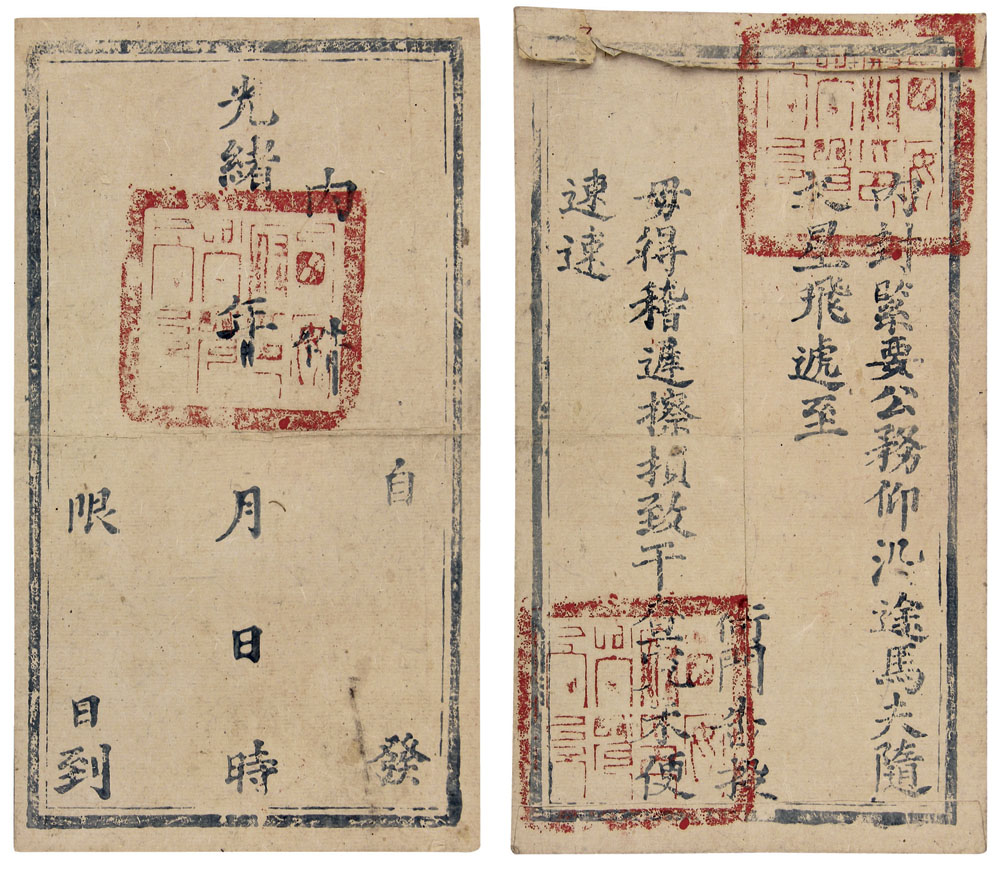 自 發
内
光緒 年 月 日 時
限 日到
内封緊要公務仰沿途馬夫隨
星飛遞至
衙門 投
毋得稽遲擦損致干查究未便
速速